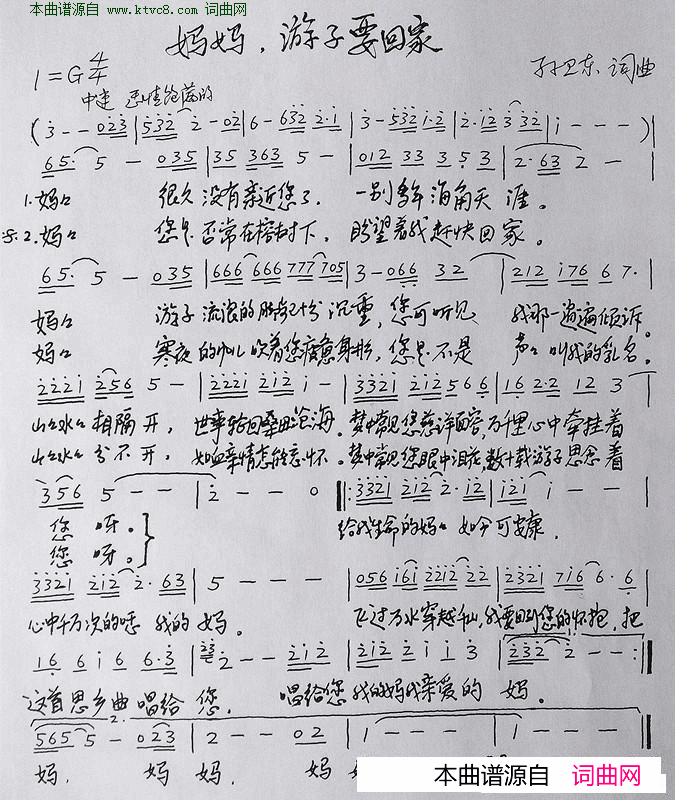 本曲谱源自
www.ktvc8.com 词曲网
妈妈，游子要回家
1=G 4/4
孙卫东 词曲
中速
(3 - - 023|532 2 - 02|6 - 632 2·1|3 - 532 1·2|2·12 3 332|1 - - -)|
65· 5 - 035|35 363 5 - |012 33 3 5 3|2·63 2 - |
1.妈々 很久没有亲近您了. 一别多年海角天涯。
2.妈々 您是否常在榕树下, 盼望着我赶快回家。
65· 5 - 035|666 666 777 705|3 - 066 32|212 176 6 7·|
妈々 游子流浪的脚步十分沉重, 您可听见 我那一遍遍倾诉。
妈々 寒夜的风儿吹着您疲惫身形, 您是不是 声々叫我的乳名。
2221 256 5 - |2221 212 1 - |3321 212 5 6 6|16 2·2 12 3|
山々水々相隔开, 世事轮回桑田沧海. 梦中常见您慈祥面容, 万千里心中牵挂着
山々水々分不开, 如血亲情怎能忘怀. 梦中常见您眼中泪花, 数十载游子思念着
356 5 - - |2 - - 0|:3321 212 2·12|121 1 - - |
您 呀. 给我生命的妈々如今可安康.
您 呀.
3321 212 2·63|5 - - - |056 161 2212 22|2321 716 6· 6|
心中千万次的唤我的妈。 飞过万水穿越千山, 我要回到您的怀抱, 把
16 6 1 6 6·3|2 - - 212|212 1 1 3|232 2 - - :|
这首思乡曲唱给您, 唱给您我的妈我亲爱的妈。
2.
565 5 - 023|2 - - 02|1 - - - |1 - - - |
妈, 妈妈, 妈
本曲谱源自 词曲网